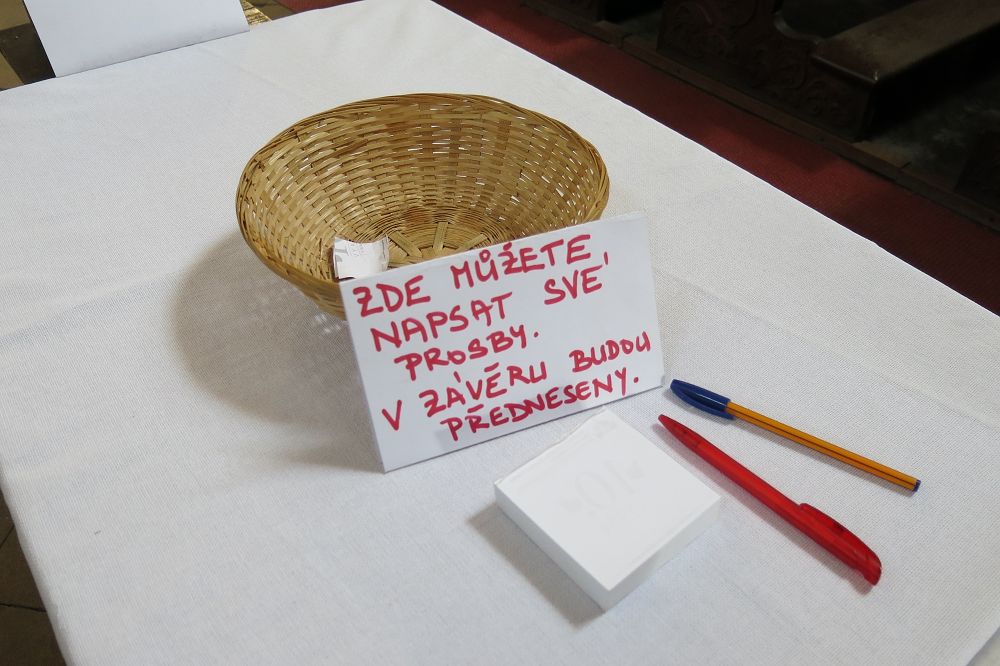 ZDE MŮŽETE
NAPSAT SVÉ
PROSBY.
V ZÁVĚRU BUDOU
PŘEDNESENY.